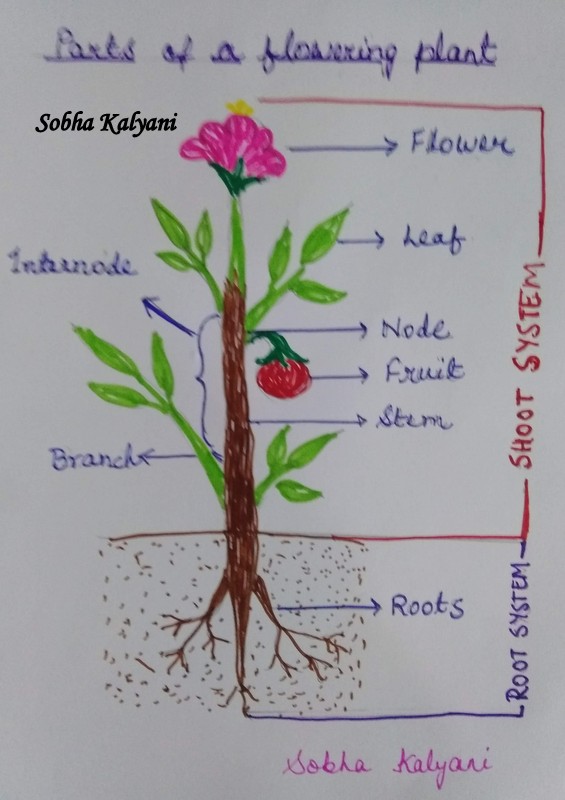 Parts of a flowering plant
Sobha Kalyani
Flower
Leaf
Internode
Node
Fruit
Stem
Branch
SHOOT SYSTEM
Roots
ROOT SYSTEM
Sobha Kalyani